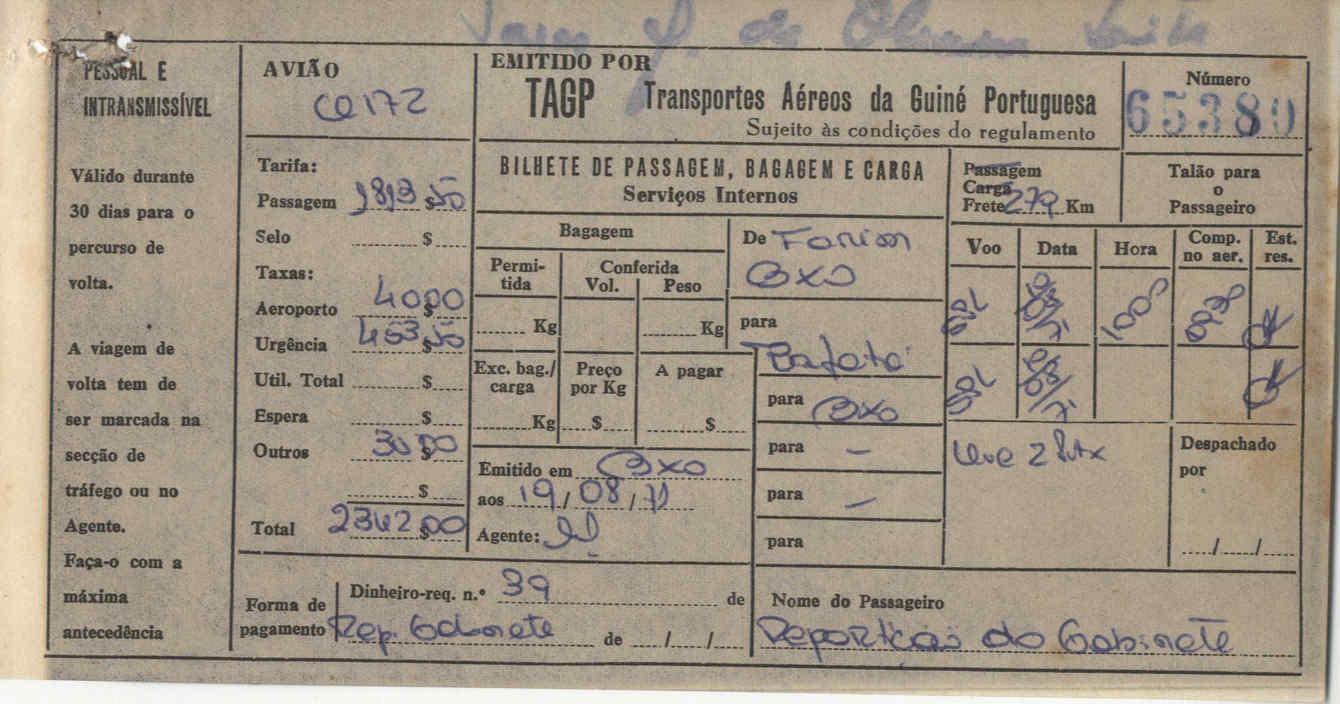 de Oliveira
PESSOAL E
INTRANSMISSÍVEL
Válido durante
30 dias para o
percurso de
volta.
A viagem de
volta tem de
ser marcada na
secção de
tráfego ou no
Agente.
Faça-o com a
máxima
antecedência
AVIÃO
CQ172
Tarifa:
Passagem 1813$50
Selo $
Taxas:
Aeroporto 40$00
Urgência 453$50
Util. Total $
Espera $
Outros 30$00
$
Total 2342$00
EMITIDO POR
TAGP Transportes Aéreos da Guiné Portuguesa
Sujeito às condições do regulamento
Número
65380
BILHETE DE PASSAGEM, BAGAGEM E CARGA
Serviços Internos
Passagem
Carga
Frete 279 Km
Talão para
o
Passageiro
Bagagem
Permi-
tida
Conferida
Vol. Peso
Kg Kg
Exc. bag./
carga
Preço
por Kg
A pagar
Kg $ $
Emitido em BXO
aos 19/08/71
Agente:
De Farim
BXO
para
Bafata
para BXO
para —
para —
para
Voo Data Hora Comp.
no aer. Est.
res.
1000 0930 OK
OK
Leve 2
Despachado
por
/ /
Forma de
pagamento Rep. Gabinete
Dinheiro-req. n.º 39 de
de / /
Nome do Passageiro
Repartição do Gabinete